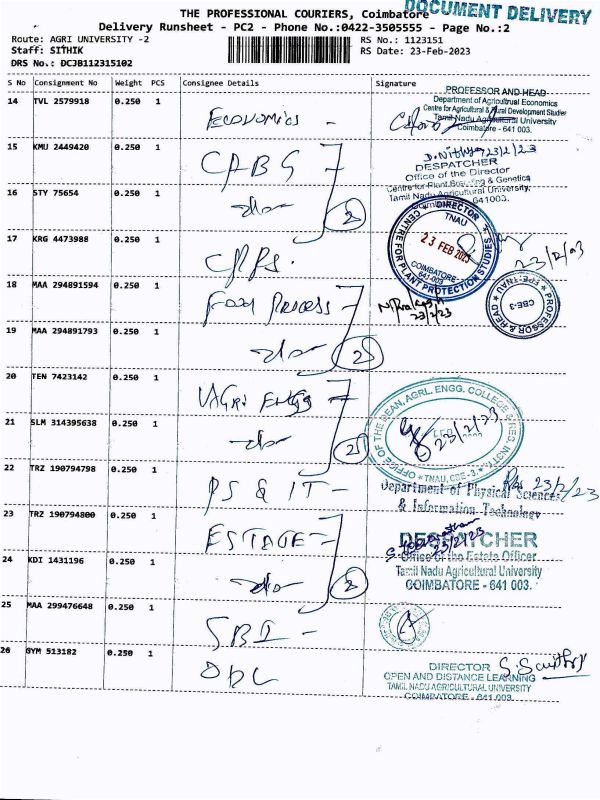 DOCUMENT DELIVERY
THE PROFESSIONAL COURIERS, Coimbatore
Delivery Runsheet - PC2 - Phone No.:0422-3505555 - Page No.:2
Route: AGRI UNIVERSITY -2
RS No.: 1123151
Staff: SITHIK
RS Date: 23-Feb-2023
DRS No.: DCJB112315102
S No Consignment No Weight PCS Consignee Details Signature
14 TVL 2579918 0.250 1 Economics -
PROFESSOR AND HEAD
Department of Agricultrual Economics
Centre for Agricultural & Rural Development Studies
Tamil Nadu Agricultural University
Coimbatore - 641 003.
15 KMU 2449420 0.250 1 CPBG
D. Nithya 23/2/23
DESPATCHER
Office of the Director
Centre for Plant Breeding & Genetics
Tamil Nadu Agricultural University,
641003.
16 STY 75654 0.250 1 -do- 2
DIRECTOR
TNAU
CENTRE FOR PLANT PROTECTION STUDIES
23 FEB 2023
COIMBATORE - 641-003
23/2/23
17 KRG 4473988 0.250 1 CPPS.
18 MAA 294891594 0.250 1 Food Process
23/2/23
PROFESSOR & HEAD
CBE-3
19 MAA 294891793 0.250 1 -do- 2
20 TEN 7423142 0.250 1 Agri Engg
OFFICE OF THE DEAN, AGRL. ENGG. COLLEGE & RES. INSTT.
TNAU, CBE-3
23/2/23
21 SLM 314395638 0.250 1 -do- 2
22 TRZ 190794798 0.250 1 PS & IT -
23/2/23
Department of Physical Sciences
& Information Technology
23 TRZ 190794800 0.250 1 ESTATE -
23/2/23
DESPATCHER
Office of the Estate Officer
Tamil Nadu Agricultural University
COIMBATORE - 641 003.
24 KDI 1431196 0.250 1 -do- 2
25 MAA 299476648 0.250 1 SBI -
26 GYM 513182 0.250 1 ODL
DIRECTOR
OPEN AND DISTANCE LEARNING
TAMIL NADU AGRICULTURAL UNIVERSITY
COIMBATORE - 641 003